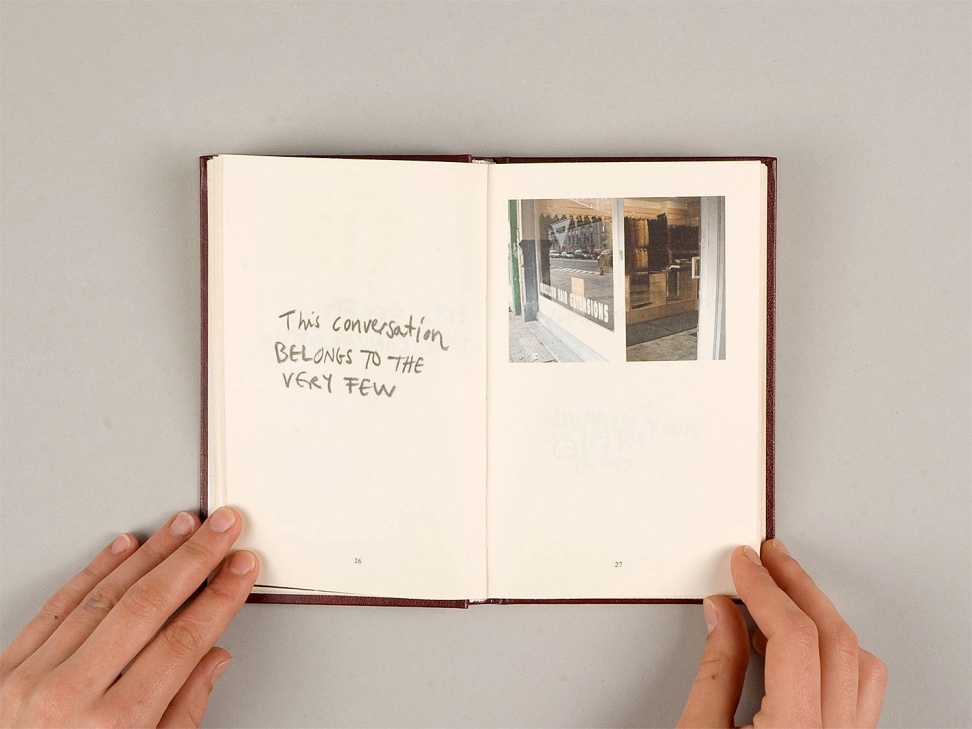 This conversation
BELONGS TO THE
VERY FEW
HAIR EXTENSIONS
26
27